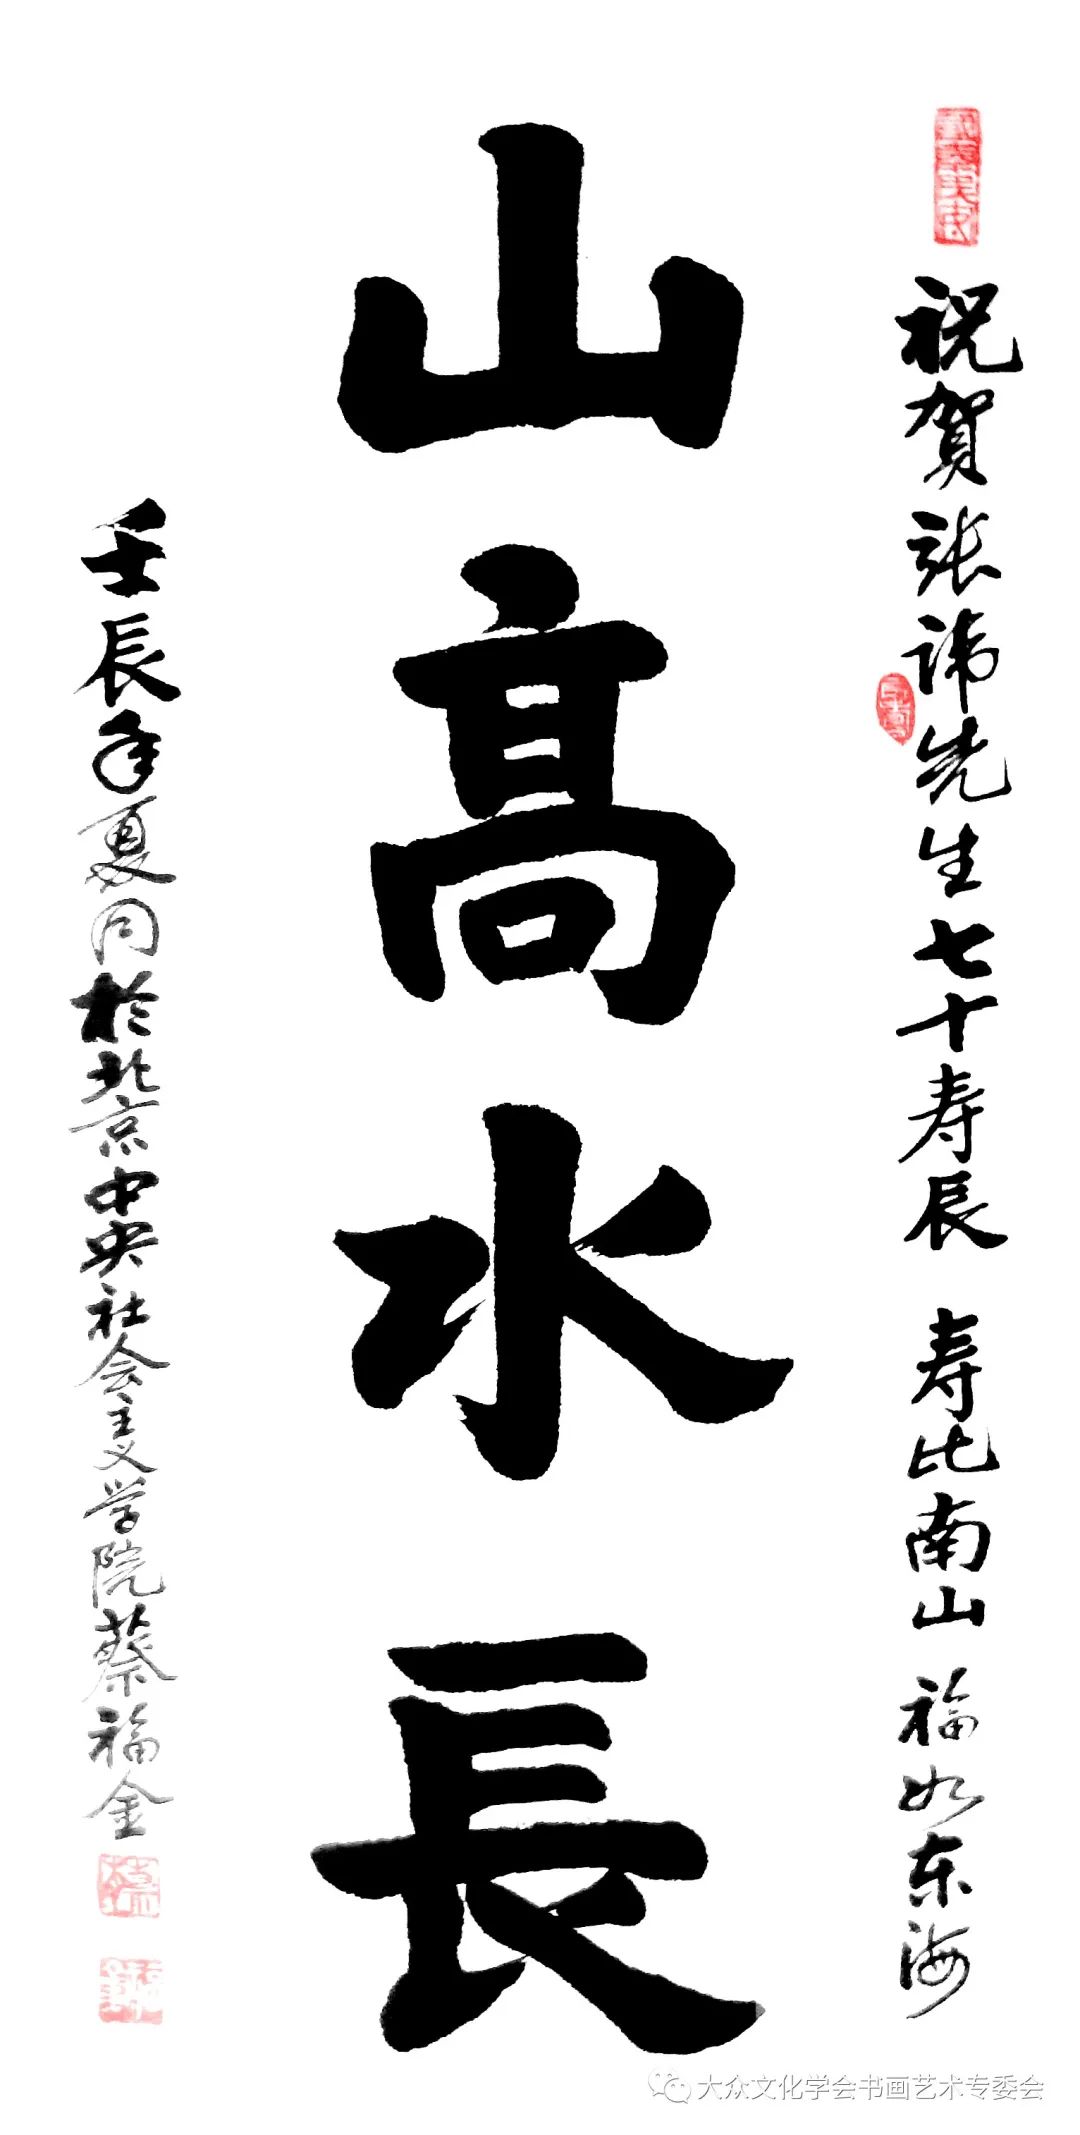 祝贺张讳先生七十寿辰 寿比南山 福如东海
山高水長
壬辰年夏月於北京中央社会主义学院蔡福金
大众文化学会书画艺术专委会